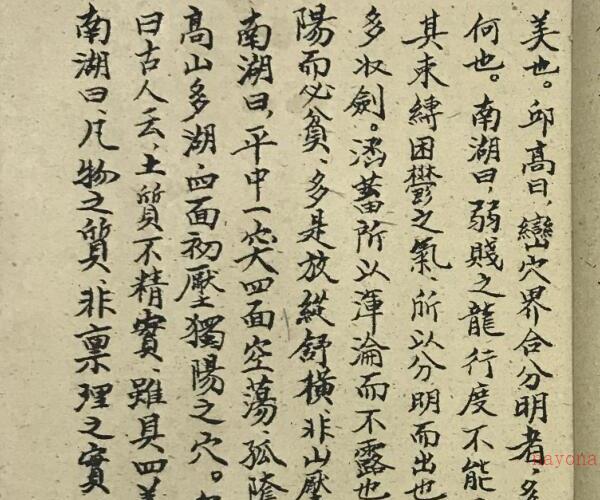 美也。邱高曰、巒穴界合分明者、多
何也。南湖曰、弱賤之龍行度不能
其束縛困鬱之氣、所以分明而出也
多收劍。涵蓄所以渾淪而不露也
陽而必貧、多是放縱舒橫、非山壓
南湖曰、平中一突四面空蕩孤陰
高山多湖、四面初壓獨陽之穴。
曰古人云、土質不精實、雖具四美
南湖曰、凡物之質、非稟理之實
nayona